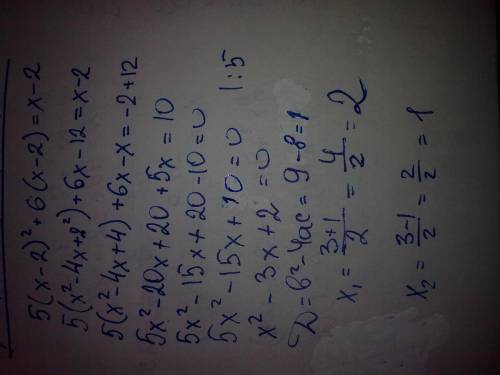 5(x-2)²+6(x-2)=x-2
5(x²-4x+2²)+6x-12=x-2
5(x²-4x+4)+6x-x=-2+12
5x²-20x+20+5x=10
5x²-15x+20-10=0
5x²-15x+10=0 |:5
x²-3x+2=0
D=b²-4ac=9-8=1
x₁=(3+1)/2=4/2=2
x₂=(3-1)/2=2/2=1